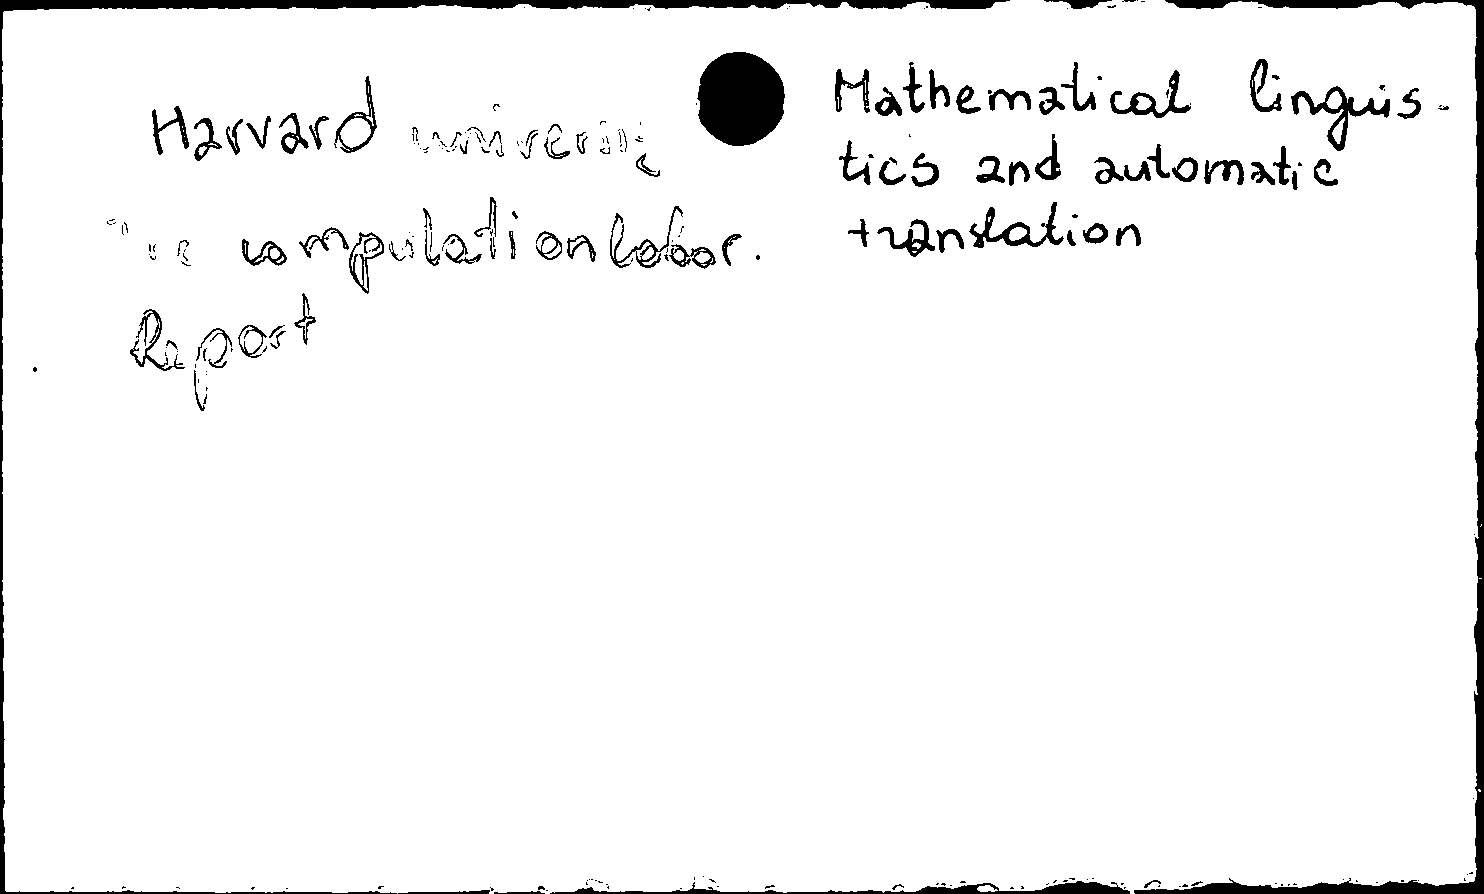 Harvard
computation labor.
Report
Mathematical linguis-
tics and automatic
translation